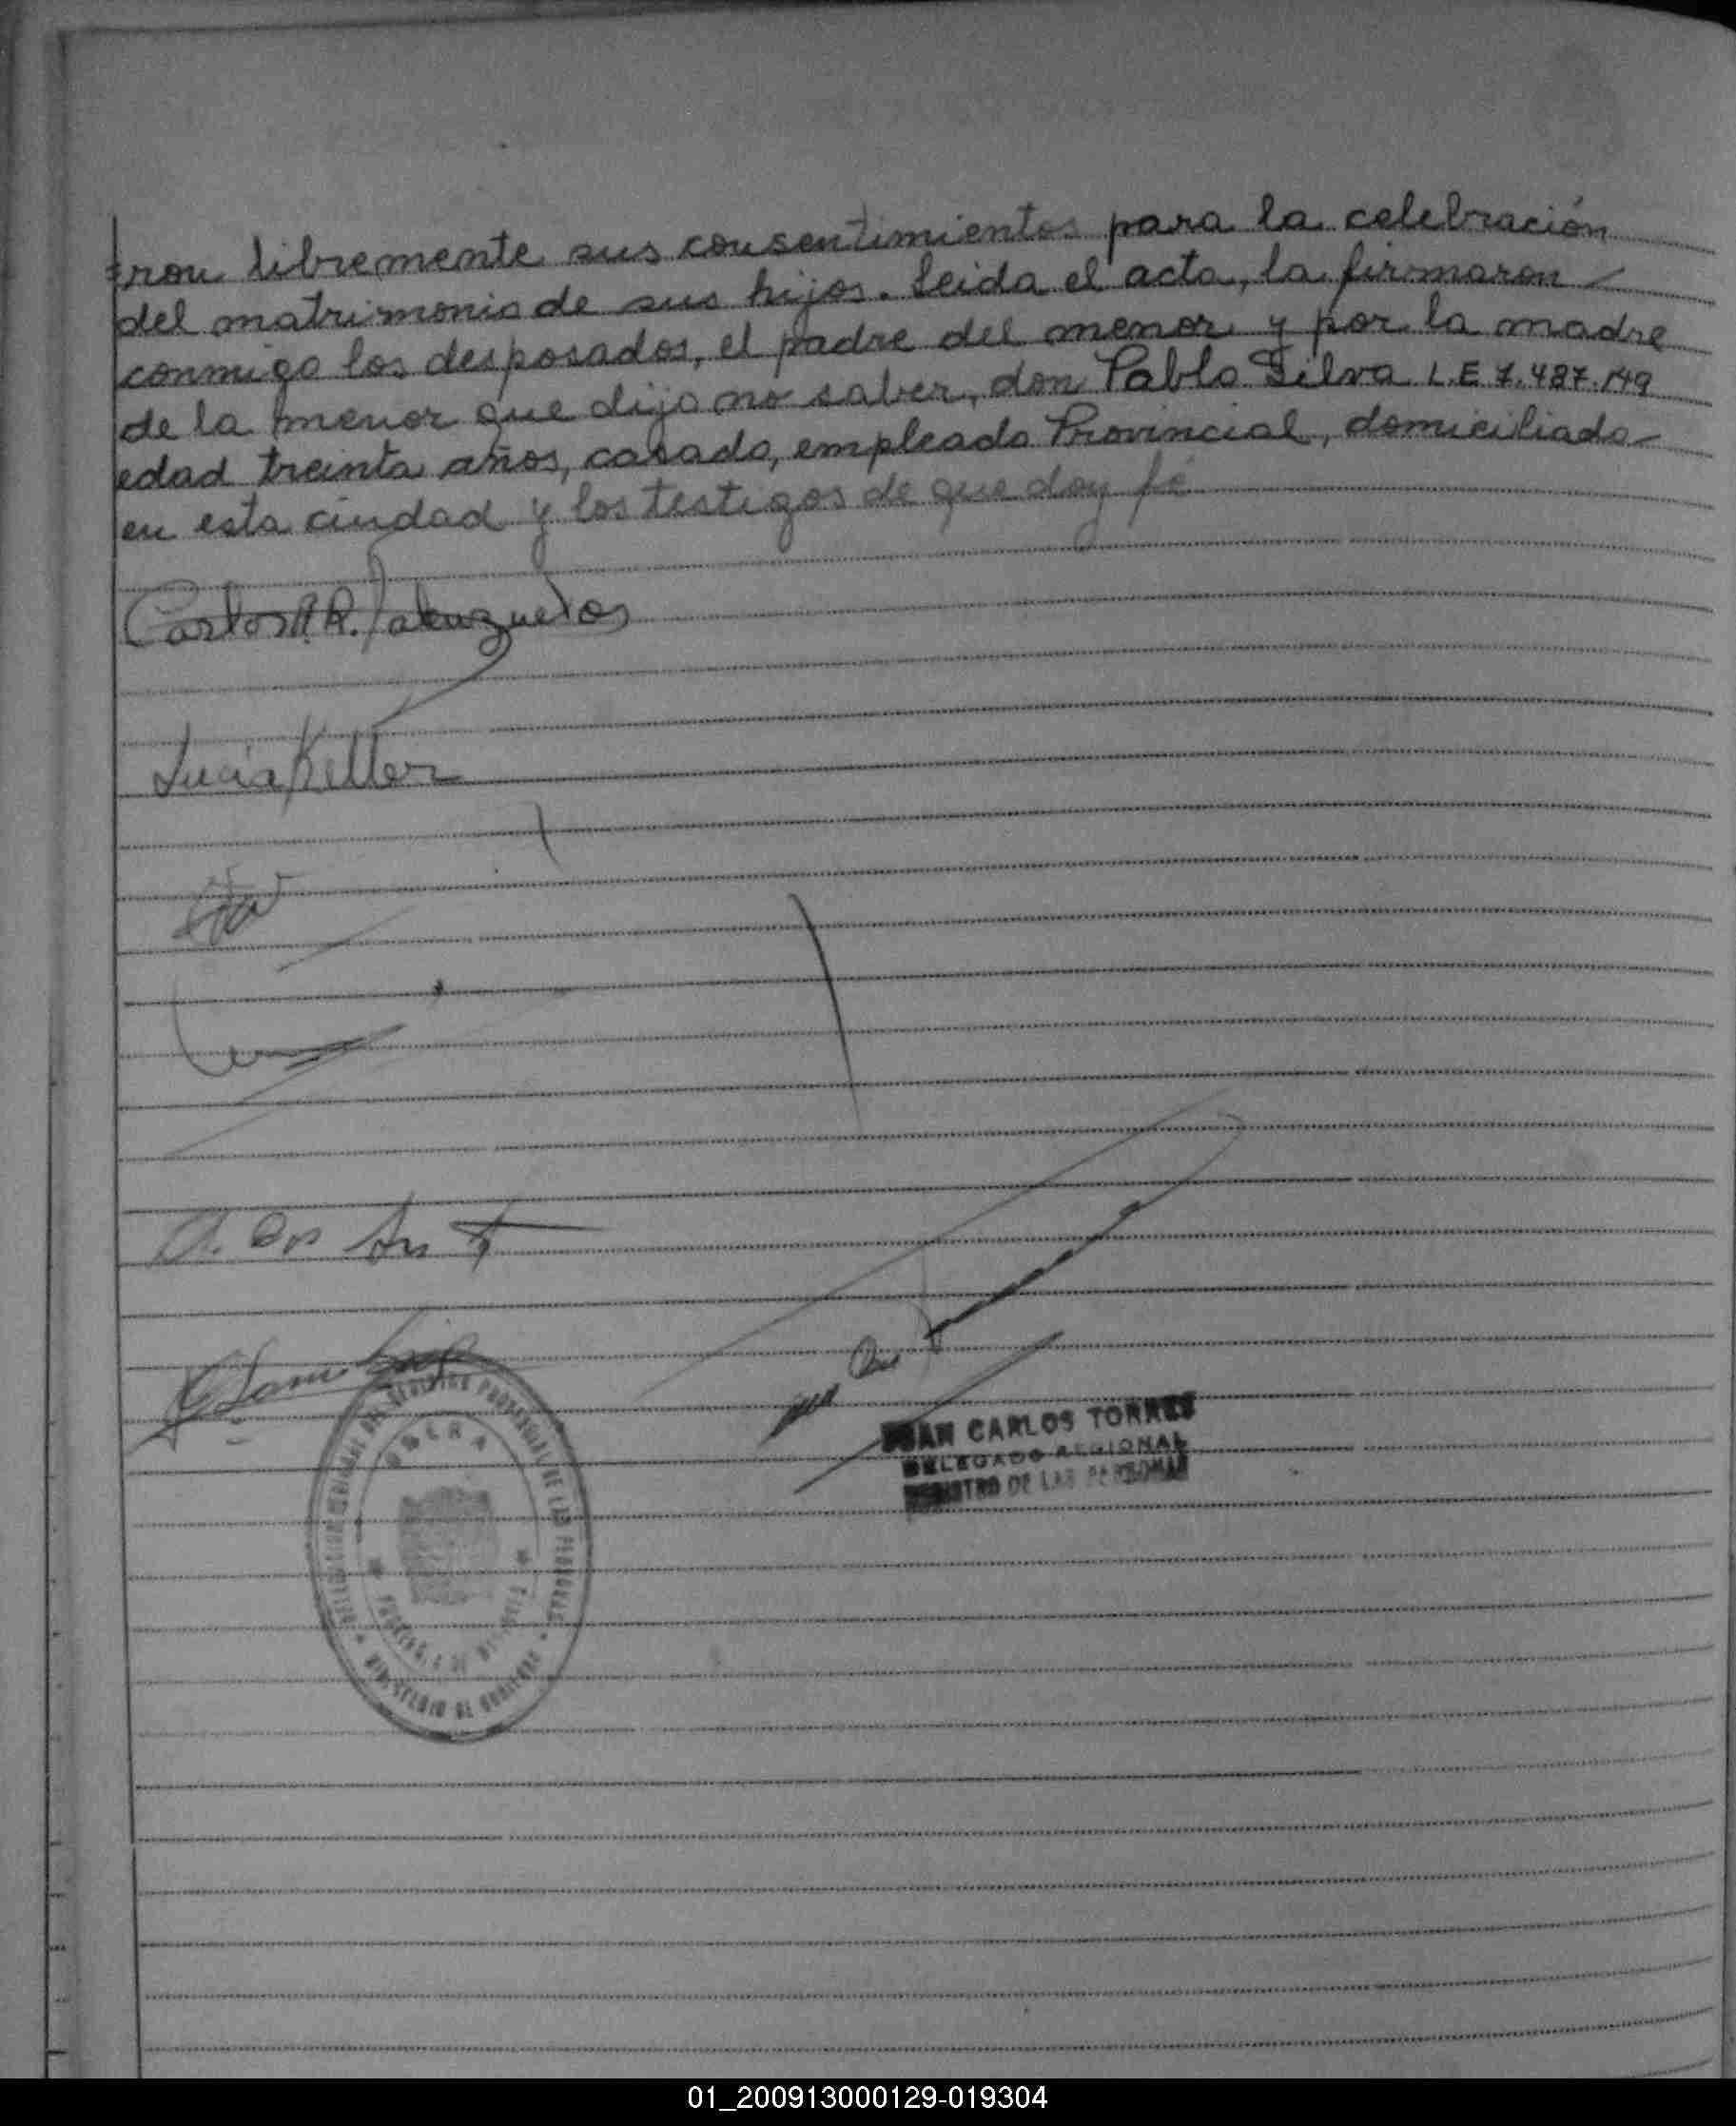 =ron libremente sus consentimientos para la celebración
del matrimonio de sus hijos. Leida el acta, la firmaron
conmigo los desposados, el padre del menor y por la madre
de la menor que dijo no saber, don Pablo Silva L.E 7.487.149
edad treinta años, casado, empleado Provincial, domiciliado
en esta ciudad y los testigos de que doy fé
Carlos R.
Lucia Keller
OBERA
JUAN CARLOS TORRES
DELEGADO REGIONAL
REGISTRO DE LAS PERSONAS
PROVINCIAL DE LAS PERSONAS
MINISTERIO DE GOBIERNO
01_200913000129-019304